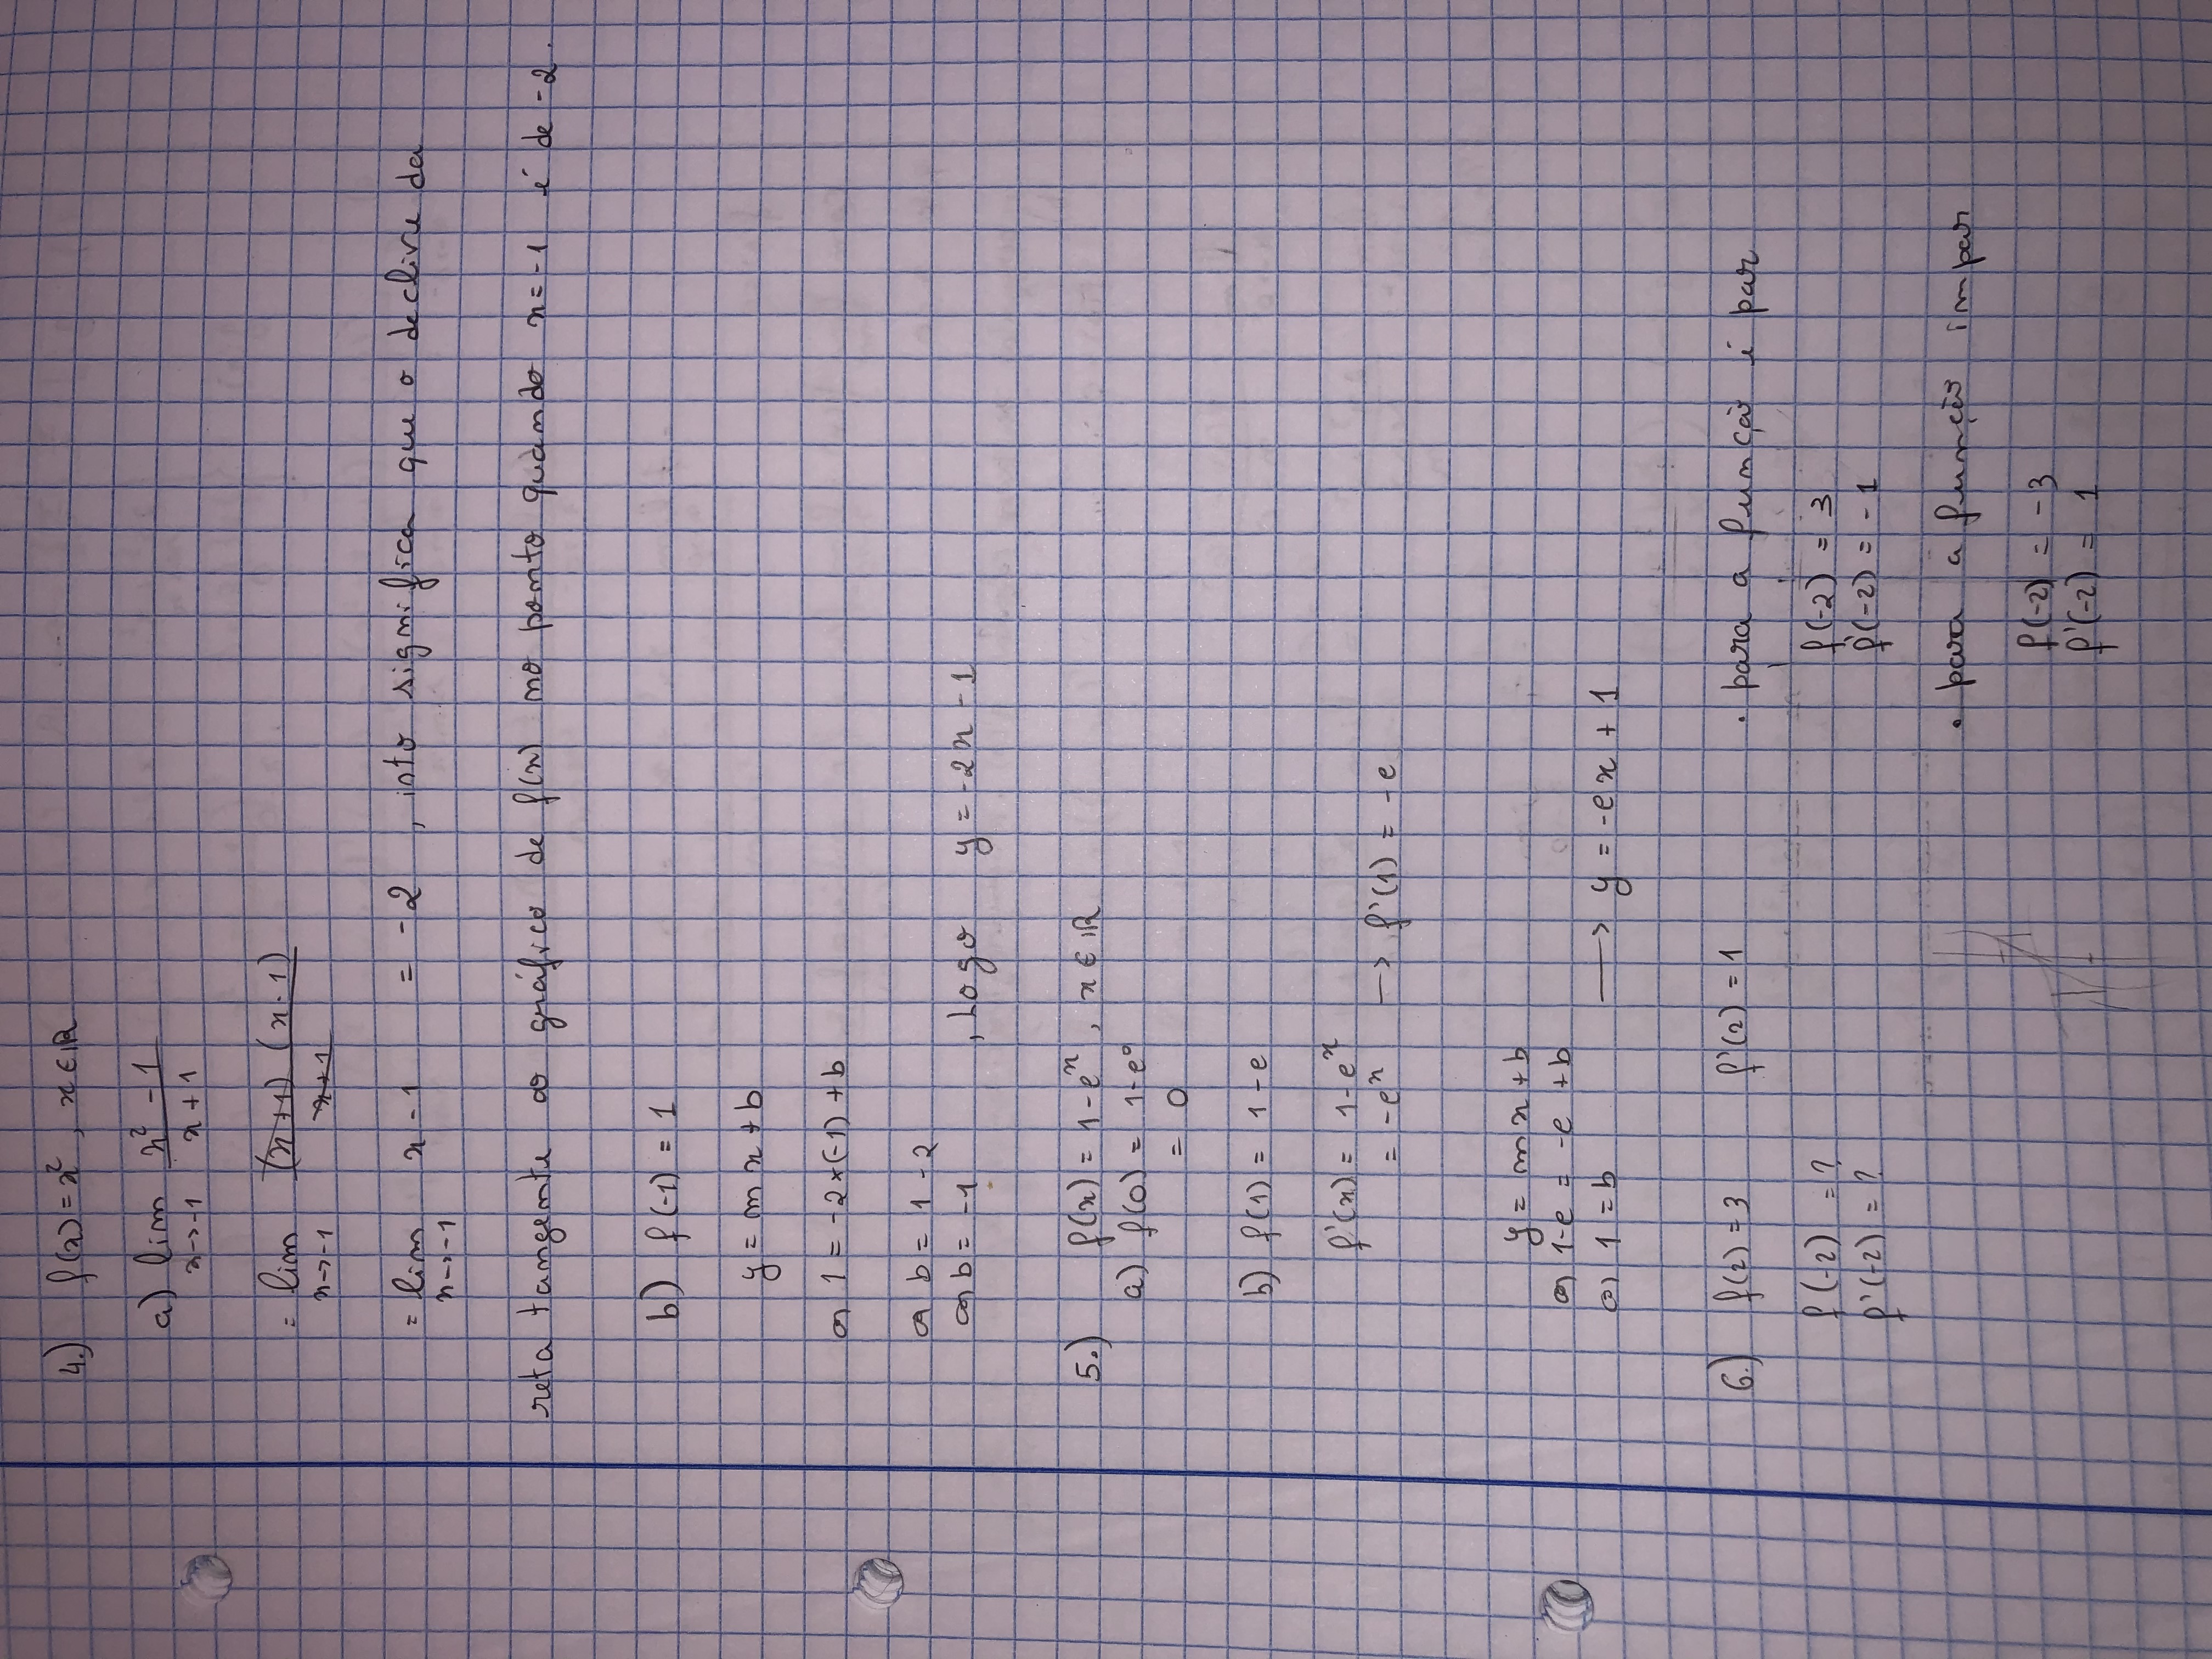 4.) f(x) = x², x ∈ ℝ
a) lim x→-1 (x² - 1)/(x + 1)
= lim x→-1 (x+1)(x-1)/(x+1)
= lim x→-1 x - 1 = -2, isto significa que o declive da
reta tangente ao gráfico de f(x) no ponto quando x = -1 é de -2.
b) f(-1) = 1
y = mx + b
⇔ 1 = -2×(-1) + b
⇔ b = 1 - 2
⇔ b = -1, Logo y = -2x - 1
5.) f(x) = 1 - eˣ, x ∈ ℝ
a) f(0) = 1 - e⁰
= 0
b) f(1) = 1 - e
f'(x) = 1 - eˣ
= -eˣ → f'(1) = -e
y = mx + b
⇔ 1-e = -e + b
⇔ 1 = b → y = -ex + 1
6.) f(2) = 3 f'(2) = 1
f(-2) = ?
f'(-2) = ?
• para a função é par
f(-2) = 3
f'(-2) = -1
• para a função impar
f(-2) = -3
f'(-2) = 1